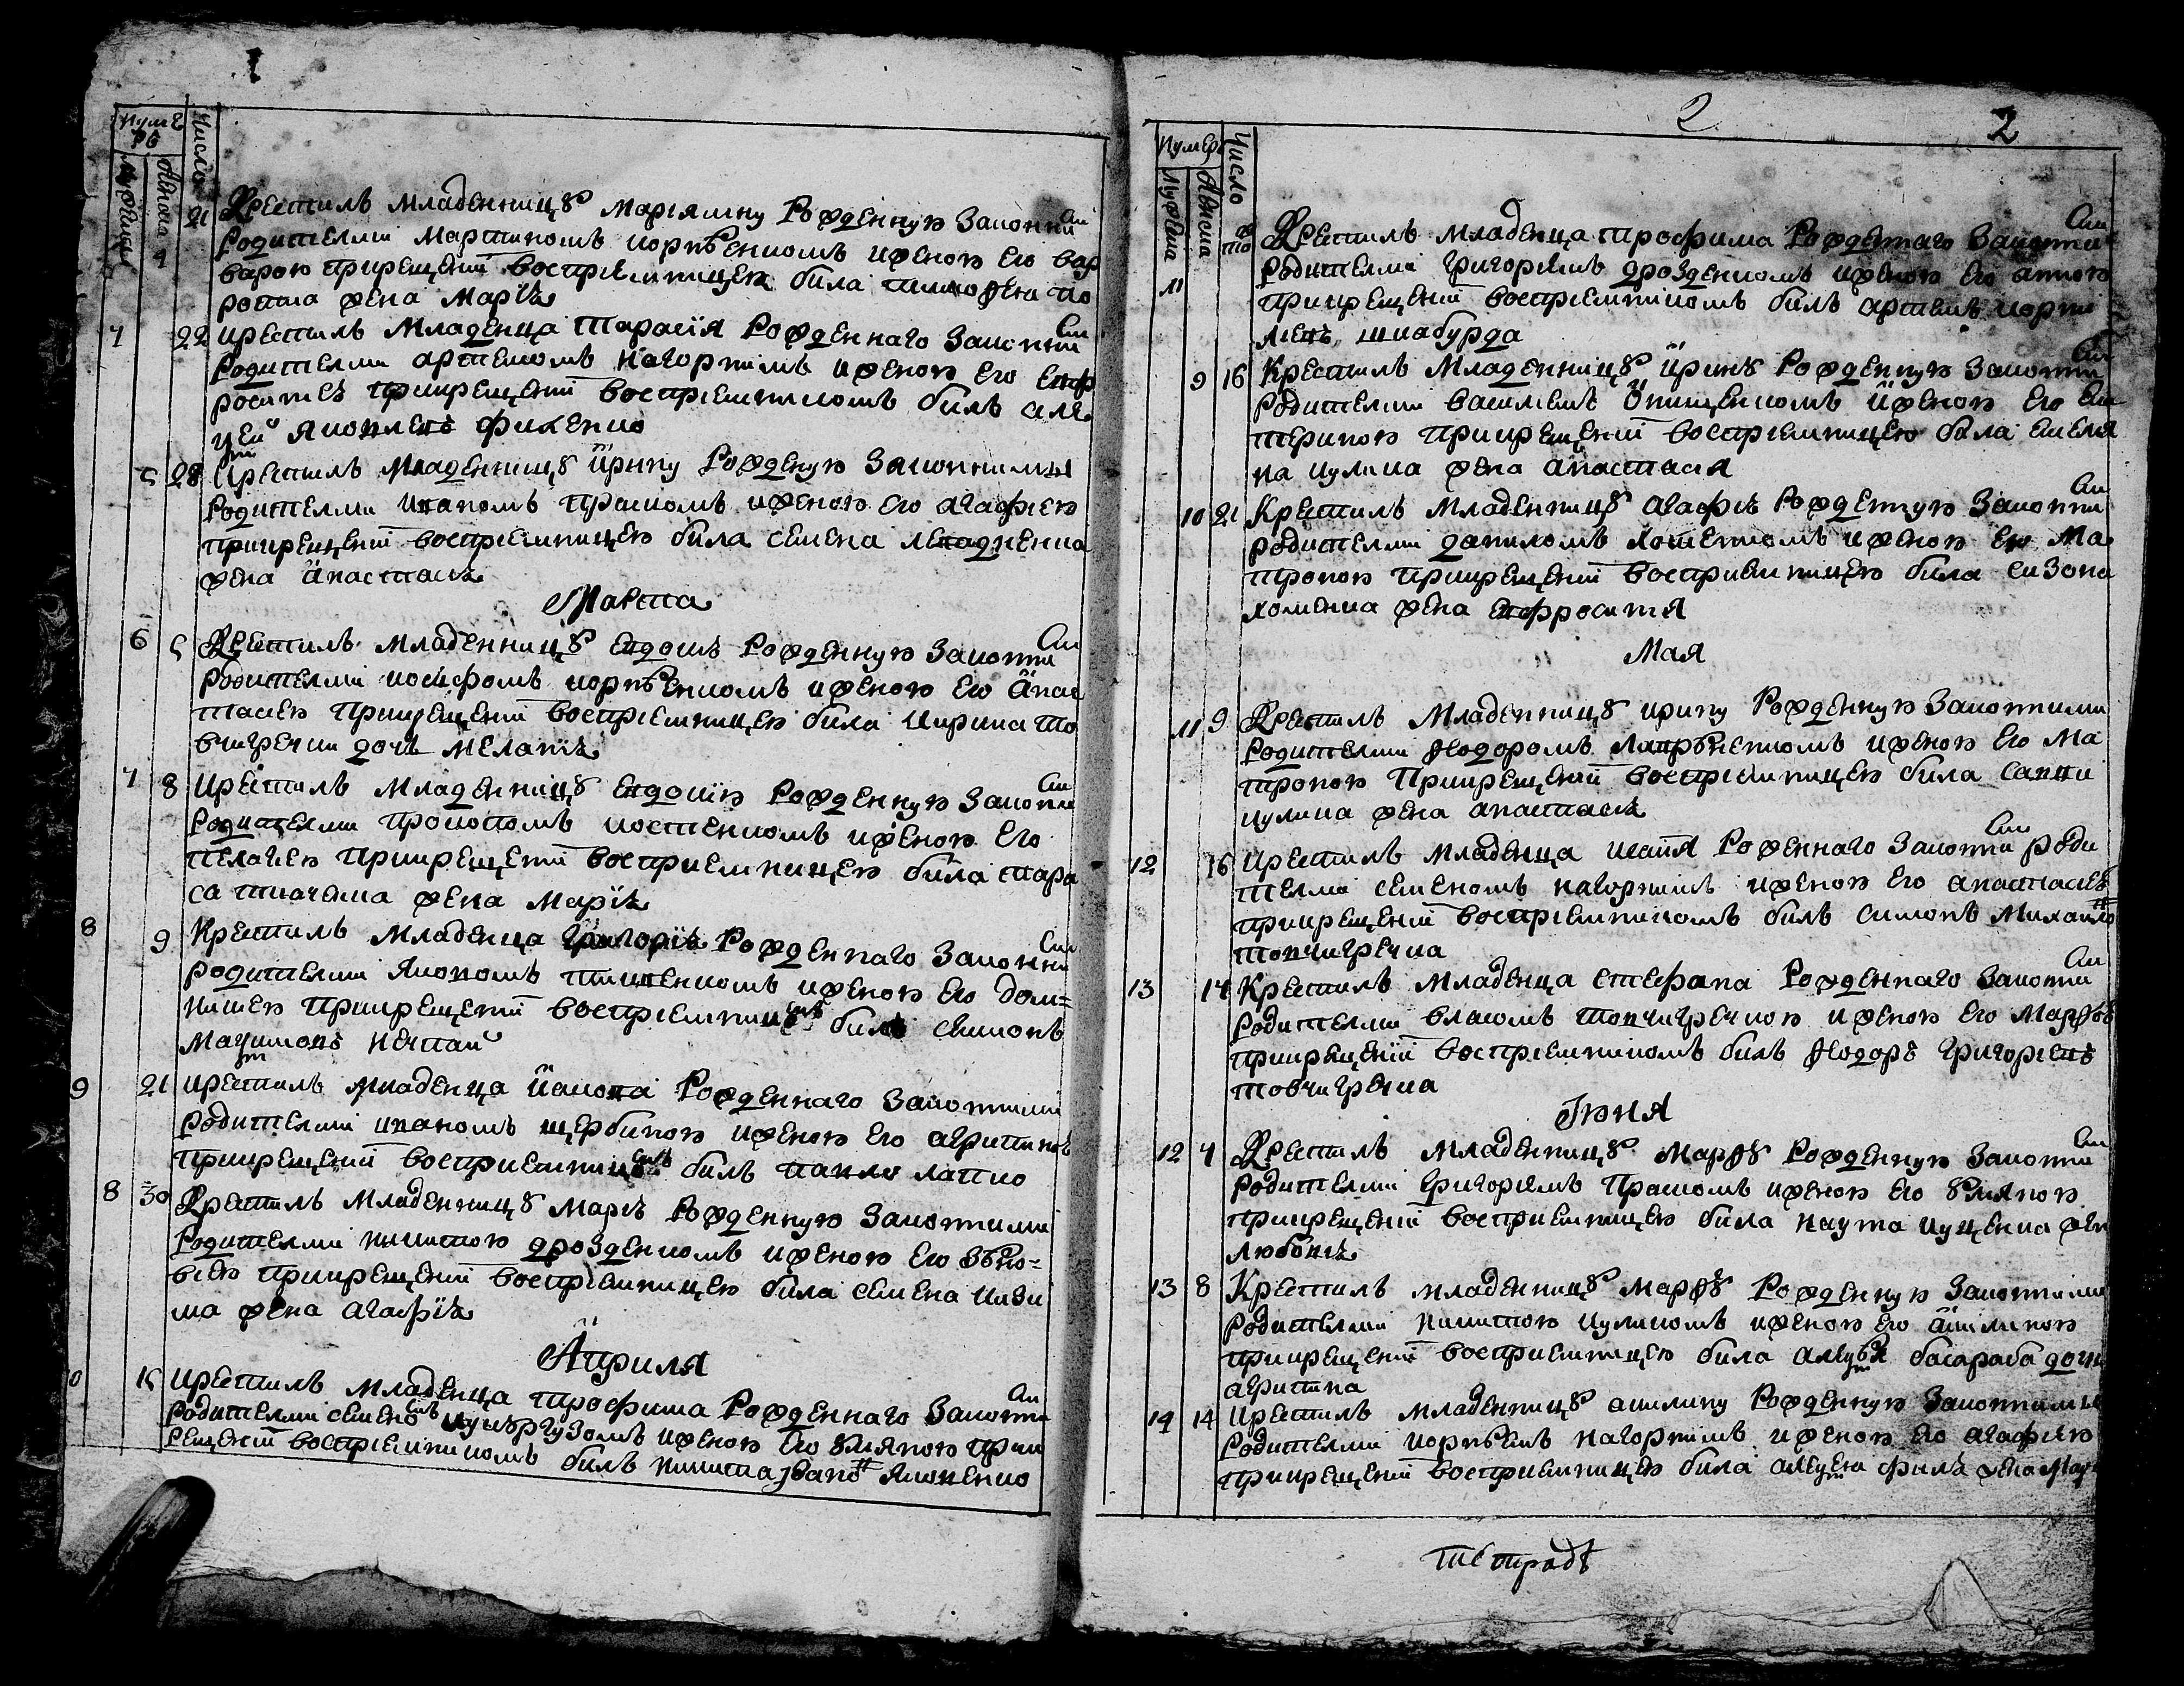 1
Нумеро
Число
Мужеска
Женска
4 21 Крестилъ младенницꙋ Марiянну Рожденную Законними
Родителми Мартиномъ корнѣенкомъ иженою его вар
варою прикрещенiй воспрiемницею била тимофея ко
жена Марiѣ
7 22 крестилъ Младенца Тарасiя Рожденнаго Законними
Родителми артемомъ нагорнимъ иженою его евф
росинiеѣ прикрещенiй воспрiемникомъ билъ алек
цей яковлевъ
5 28 крестилъ младенницꙋ ирину Рожденую Законними
Родителми иваномъ прашомъ иженою его агафiею
прикрещенiй воспрiемницею била семена
жена анастасiѣ
Марта
6 5 Крестилъ младенницꙋ евдокiѣ Рожденную Законними
Родителми иосифомъ корнѣенкомъ иженою его анас
тасиею прикрещенiй воспрiемницею била кирика то
вчигречки дочь меланiѣ
7 8 крестилъ младенницꙋ евдокiю Рожденную Законними
Родителми прокопомъ костенкомъ иженою его
пелагиею прикрещенiй восприемницею била тара
са ткаченка жена Марiѣ
8 9 Крестилъ младенца григорiѣ Рожденнаго Законними
родителми яковомъ иженою его дом=
никиею прикрещенiй воспрiемникомъ билъ симонъ
максимовъ нечпай
9 21 крестилъ младенца иакова Рожденнаго Законними
родителми иваномъ щербиною иженою его агрипиною
прикрещенiй восприемникомъ билъ павло лапко
8 30 Крестилъ младенницꙋ Марiѣ Рожденную Законними
Родителми никитою дрозденкомъ иженою его зѣно=
вiею прикрещенiй воспрiемницею била семена кизи
ма жена агафiѣ
Априля
10 15 крестилъ младенца трофима Рожденнаго Законними
родителми семеномъ иженою его ꙋлияною прик
рещенiй воспрiемникомъ билъ никита iванов яковенко
2
2
Нумеро
Число
Мужеска
Женска
11 тогож Крестилъ младенца трофима Рожденнаго Законними
родителми григорiемъ дрозденкомъ иженою его анною
прикрещенiй воспрiемникомъ билъ артемъ корни
левъ шкабурда
9 16 Крестилъ младенницꙋ иринꙋ Рожденную Законними
родителми василемъ онищенкомъ иженою его ека
териною прикрещенiй воспрiемницею била емеля
на кулика жена анастасiя
10 21 Крестилъ младенницꙋ агафiѣ Рожденную Законними
родителми даниломъ хоменкомъ иженою его Ма
троною прикрещенiй восприемницею била сизона
хоменка жена евфросинiя
Мая
11 9 Крестилъ младенницꙋ ирину Рожденную Законними
родителми Ѳедоромъ лаврѣненкомъ иженою его Ма
троною прикрещенiй воспрiемницею била савки
кулика жена анастасiѣ
12 16 крестилъ младенца исаiя Роженнаго Законними роди
телми семеномъ нагорнимъ иженою его анастасиеѣ
прикрещенiй воспрiемникомъ билъ симонъ михайло
товчигречка
13 17 Крестилъ младенца стефана Рожденнаго Законними
родителми власомъ товчигречкою иженою его Марѳою
прикрещенiй воспрiемникомъ билъ Ѳедоръ григорiевъ
товчигречка
Iюня
12 4 Крестилъ младенницꙋ Марѳꙋ Рожденную Законними
родителми григорiемъ прашомъ иженою его ꙋлияною
прикрещенiй восприемницею била наума куценка жена
любовиѣ
13 8 Крестилъ младенницꙋ марѳꙋ Рожденную Законними
родителми никитою куликомъ иженою его акилиною
прикрещенiй восприемницею била алекѣя басараба дочь
агрипина
14 14 крестилъ младенницꙋ акилину Рожденную Законними
родителми корнѣемъ нагорнимъ иженою его агафиею
прикрещенiй восприемницею била алекцея жена